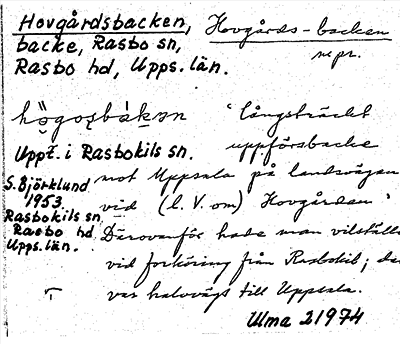 Hovgårdsbacken, Hovgårds-backen
backe, Rasbo sn, nepr.
Rasbo hd, Upps. län.
högosbakan 'långsträckt
Uppt. i Rasbokils sn. uppförsbacke
S. Björklund mot Uppsala på landsvägen
1953 vid (l. V. om) Hovgården'
Rasbokils sn Därovanför hade man vilställe
Rasbo hd vid forköring från Rasbokil; det
Upps. län. var halvvägs till Uppsala.
Ulma 21974